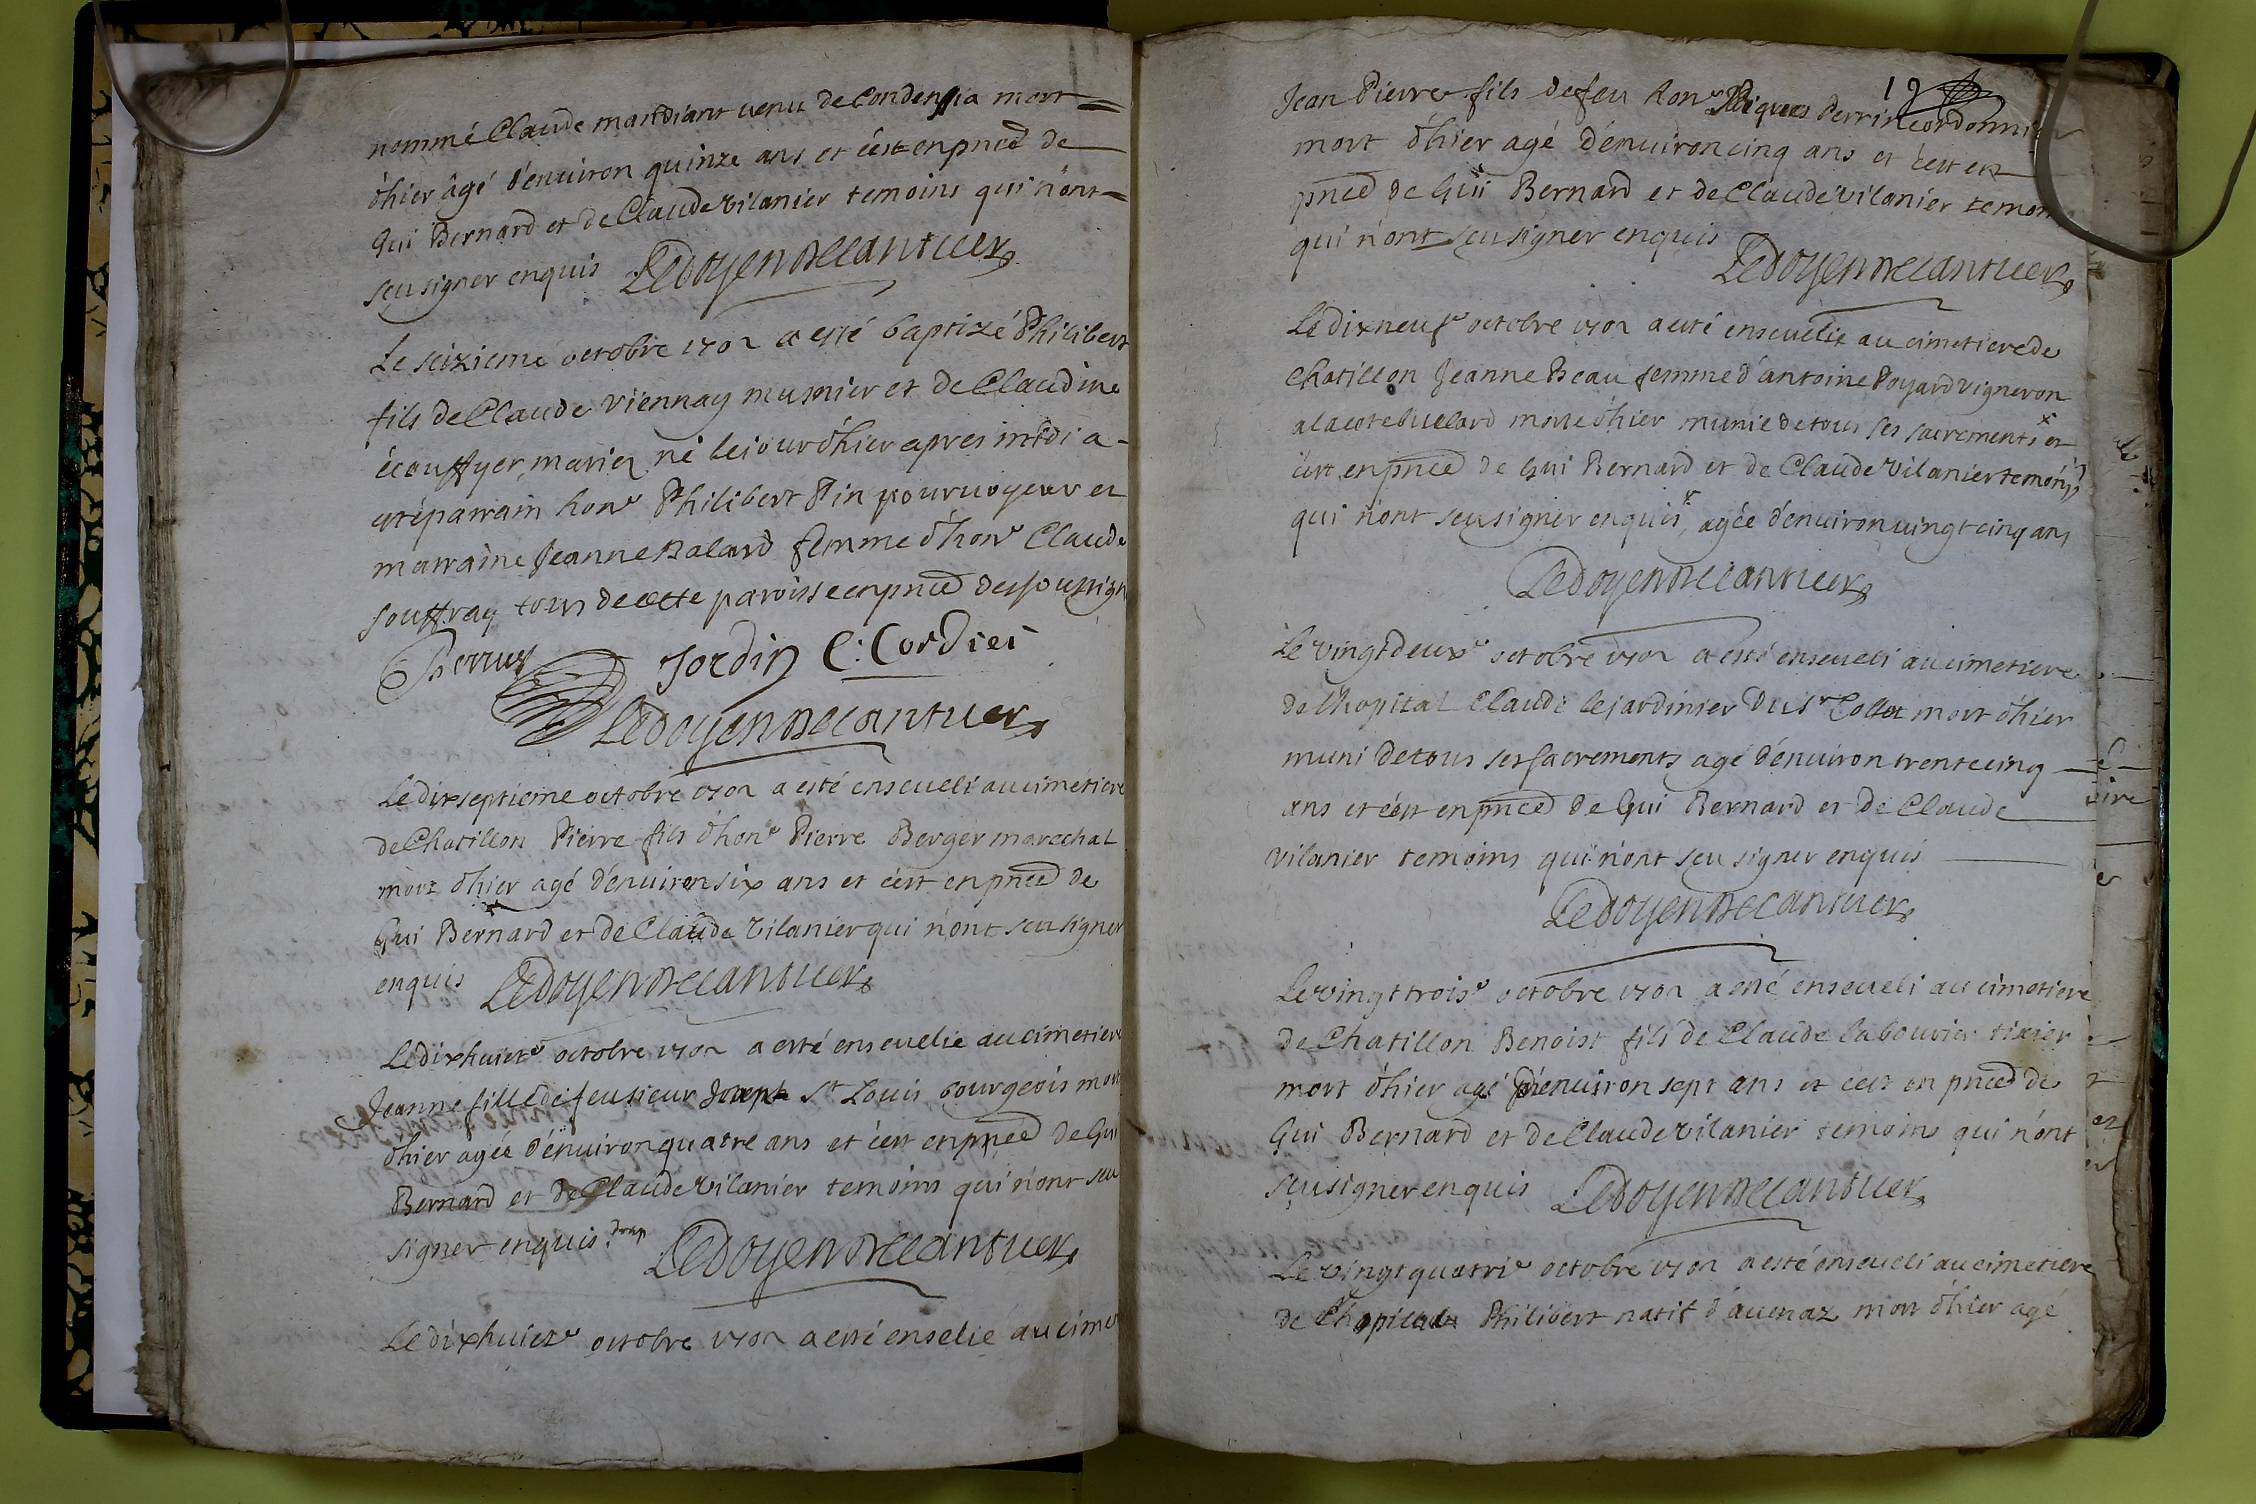 nommé Claude mandiant venu de Condeissia mort
d'hier âgé d'environ quinze ans et c'est en pnce de
Gui Bernard et de Claude Vilanier temoins qui n'ont
seu signer enquis Ledoyen Decantuer
Le seizieme octobre 1702 a esté baptizé Philibert
fils de Claude Viennay musnier et de Claudine
écouffyer mariez né le jour d'hier apres midi a
eté parrain hone Philibert Pin pourvoyeur et
marraine Jeanne Balard femme d'hone Claude
souffray tous de cette paroisse en pnce des soussign
Perruy Jordin C: Cordier
Ledoyen Decantuer
Le dix septieme octobre 1702 a esté enseveli au cimetiere
de Chatillon Pierre fils d'hone Pierre Berger marechal
mort d'hier agé d'environ six ans et c'est en pnce de
Gui Bernard et de Claude Vilanier qui n'ont seu signer
enquis Ledoyen Decantuer
Le dixhuicte octobre 1702 a esté ensevelie au cimetiere
Jeanne fille de feu sieur Joseph St Louis bourgeois morte
d'hier agée d'environ quatre ans et c'est en pnce de Gui
Bernard et de Claude Vilanier temoins qui n'ont seu
signer enquis Ledoyen Decantuer
Le dixhuicte octobre 1702 a esté enselie au cime
19
Jean Pierre fils de feu hone Perrin cordonnier
mort d'hier agé d'environ cinq ans et c'est en
pnce de Gui Bernard et de Claude Vilanier temoin
qui n'ont seu signer enquis
Ledoyen Decantuer
Le dixneufe octobre 1702 a eté ensevelie au cimetiere de
Chatillon Jeanne Beau femme d'antoine Poyard vigneron
a la cote buelard morte d'hier munie de tous ses sacrements x et
c'est en pnce de Gui Bernard et de Claude Vilanier temoins
qui n'ont seu signer enquis x agée d'environ vingt cinq ans
Ledoyen Decantuer
Le vingt deuxe octobre 1702 a esté enseveli au cimetiere
de l'hopital Claude le jardinier du Sr Collet mort d'hier
muni de tous ses sacrements agé d'environ trente cinq
ans et c'est en pnce de Gui Bernard et de Claude
Vilanier temoins qui n'ont seu signer enquis
Ledoyen Decantuer
Le vingt troise octobre 1702 a esté enseveli au cimetiere
de Chatillon Benoist fils de Claude labouvier tixier
mort d'hier agé d'environ sept ans et c'est en pnce de
Gui Bernard et de Claude Vilanier temoins qui n'ont
seu signer enquis Ledoyen Decantuer
Le vingt quatrie octobre 1702 a esté enseveli au cimetiere
de l'hopital Philibert natif d'avenaz mort d'hier agé